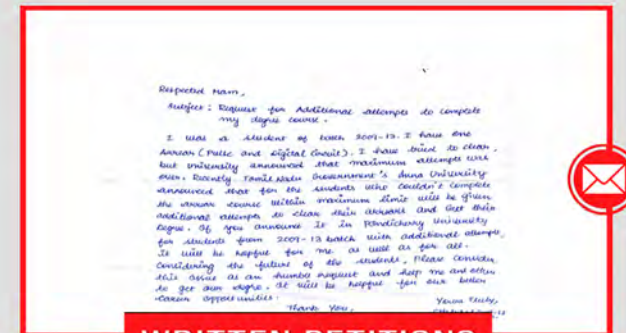 Respected Mam,
Subject : Request for Additional attempts to complete
my degree course.
I was a student of batch 2009-13. I have one
Arrear (Pulse and Digital Circuit). I have tried to clear,
but university announced that maximum attempts was
over. Recently Tamil Nadu Government's Anna University
announced that for the students who couldn't complete
the arrear course within maximum limit will be given
additional attempts to clear their arrears and get their
degree. If you announce it in Pondicherry University
for students from 2009-13 batch with additional attempts,
it will be helpful for me as well as for all.
Considering the future of the students, Please consider
this issue as an humble request and help me and others
to get our degree. It will be helpful for our better
career opportunities.
Thank You,
Yours Truly,
WRITTEN PETITIONS